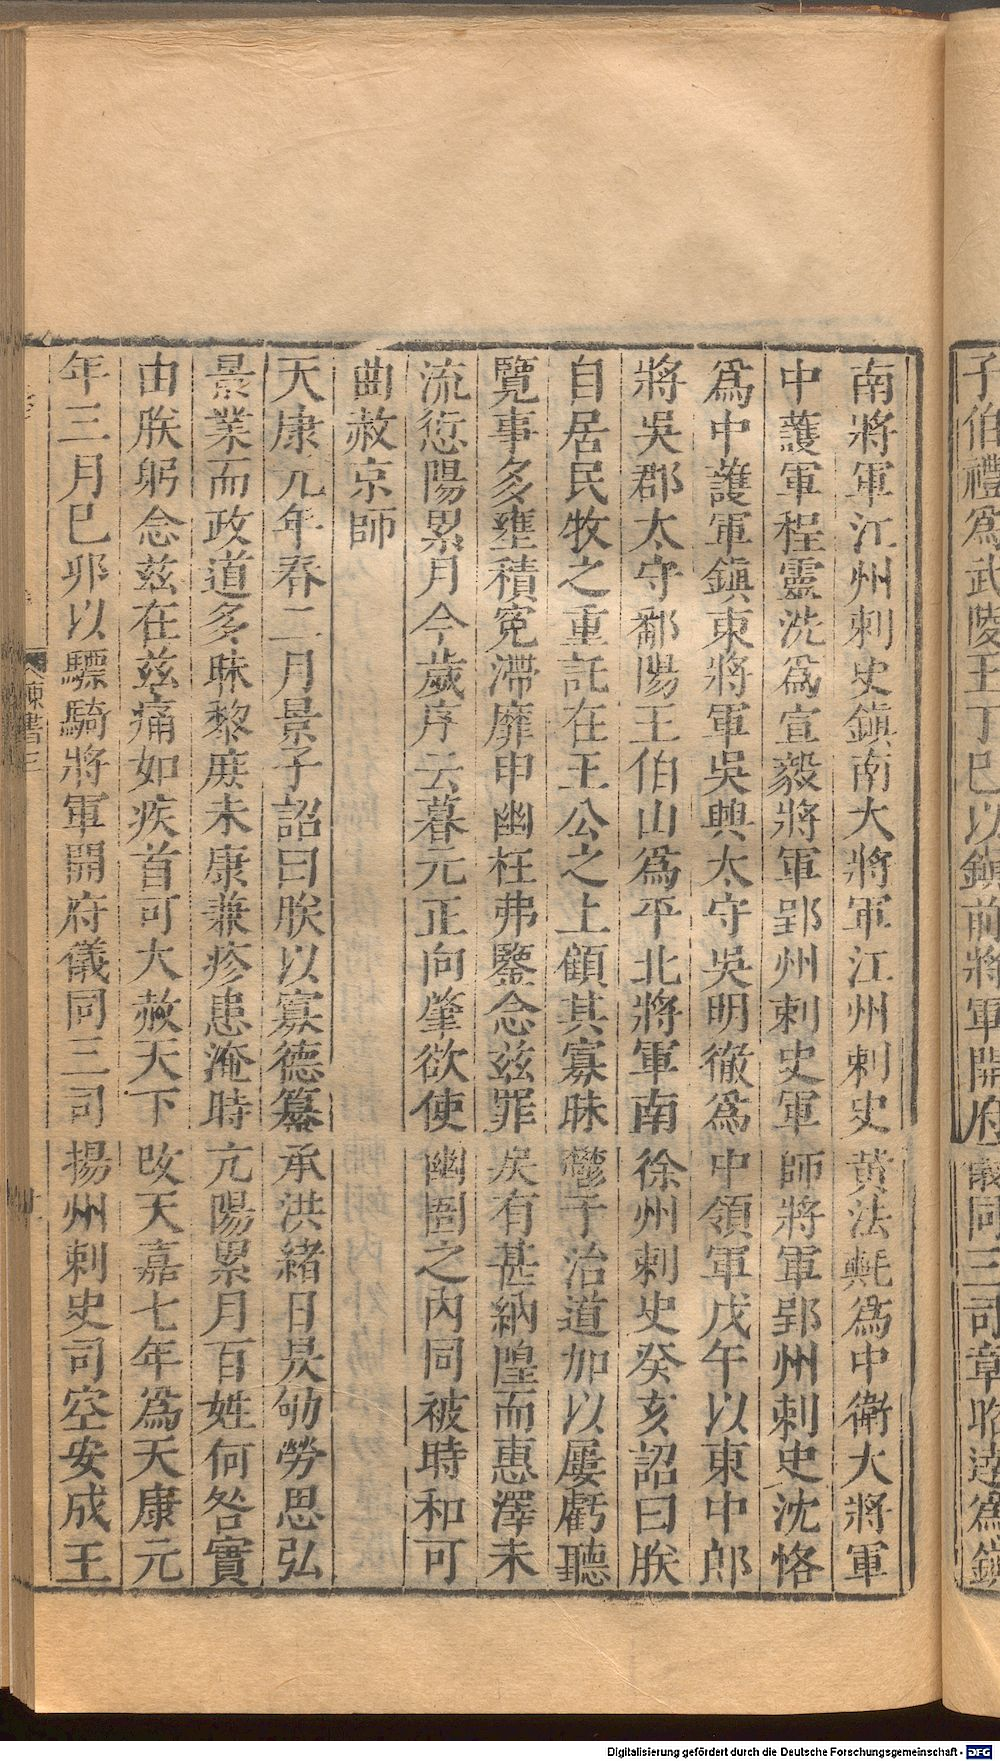 子伯禮爲武陵王丁巳以鎮前將軍開府儀同三司章昭達爲鎮
南將軍江州刺史鎮南大將軍江州刺史黃法𣰰爲中衛大將軍
中護軍程靈洗爲宣毅將軍郢州刺史軍師將軍郢州刺史沈恪
爲中護軍鎮東將軍吳興太守吳明徹爲中領軍戊午以東中郎
將吳郡太守鄱陽王伯山爲平北將軍南徐州刺史癸亥詔曰朕
自居民牧之重託在王公之上顧其寡昧鬱于治道加以屢虧聽
覽事多壅積寃滯靡申幽枉弗鑒念兹罪戾有甚納隍而惠澤未
流愆陽累月今歲序云暮元正向肇欲使幽圄之內同被時和可
曲赦京師
天康元年春二月景子詔曰朕以寡德纂承洪緒日昃劬勞思弘
景業而政道多昧黎庶未康兼疹患淹時亢陽累月百姓何咎實
由朕躬念兹在兹痛如疾首可大赦天下攺天嘉七年爲天康元
年三月巳卯以驃騎將軍開府儀同三司揚州刺史司空安成王
陳書三
Digitalisierung gefördert durch die Deutsche Forschungsgemeinschaft - DFG